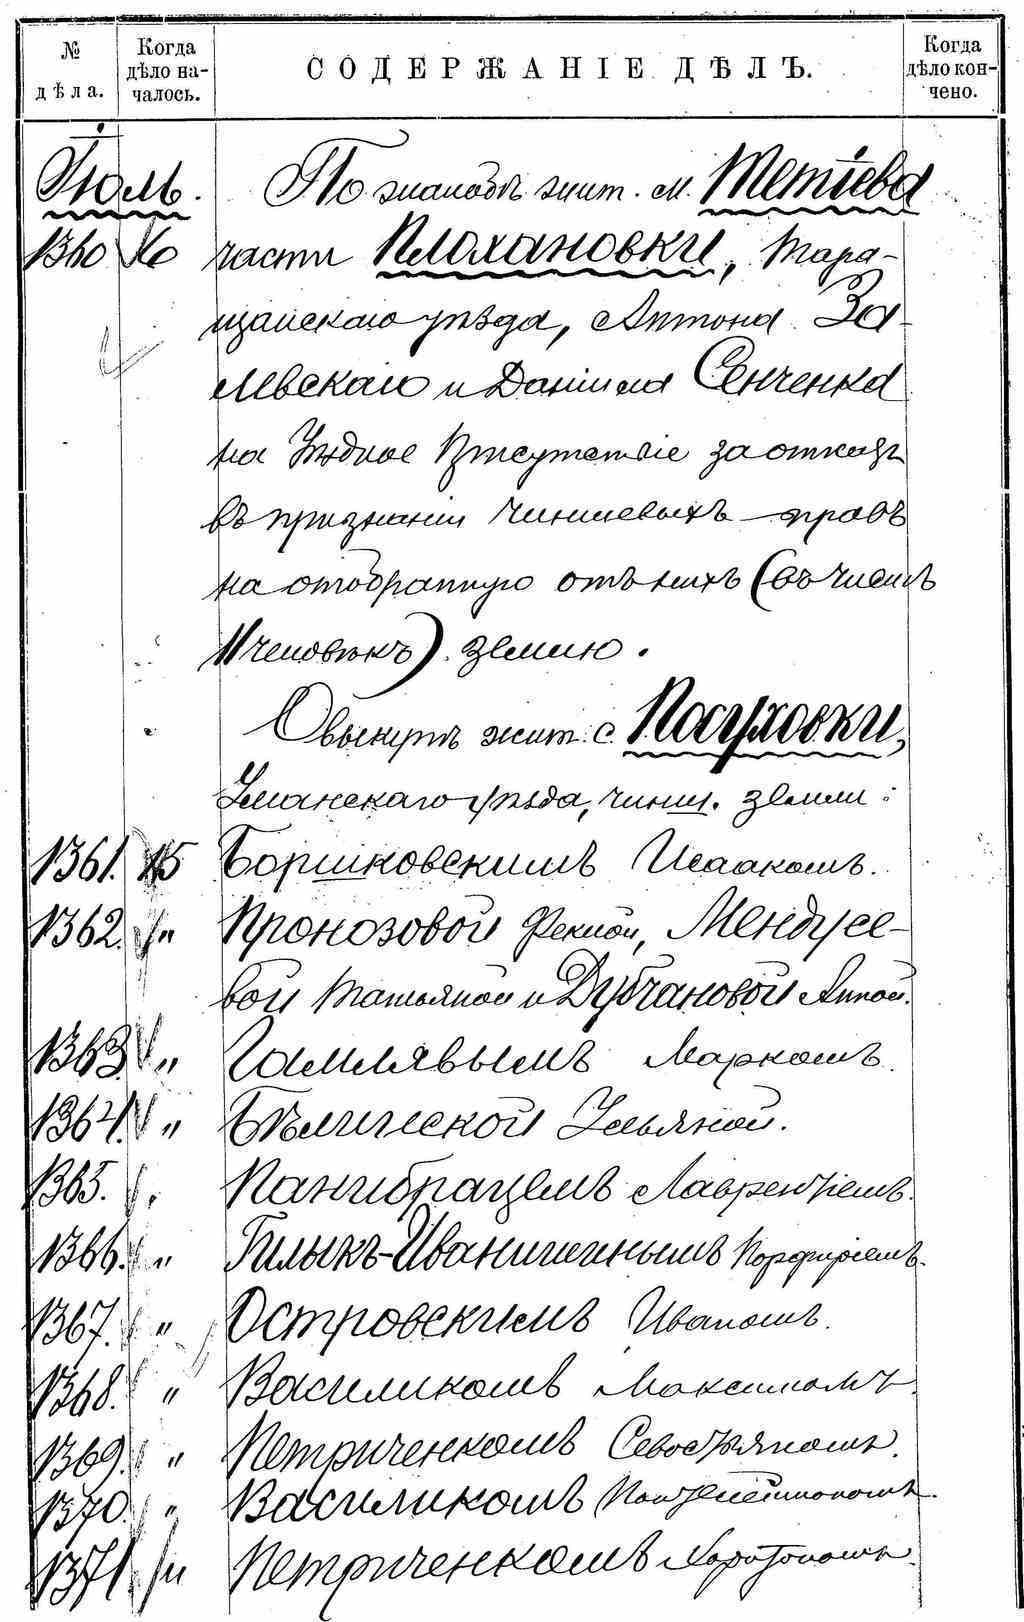 № дѣла.
Когда дѣло началось.
СОДЕРЖАНІЕ ДѢЛЪ.
Когда дѣло кончено.
Іюль.
По жалобѣ жит. м. Тетіева
1360 16 части Плохановки, Тара-
щанскаго уѣзда, Антона За-
левскаго и Даніила Сенченка
на Уѣздное Присутствіе за отказъ
въ признаніи чиншевыхъ правъ
на отобранную отъ нихъ (въ числѣ
11 человѣкъ) землю.
О выкупѣ жит. с. Посуховки,
Уманскаго уѣзда, чинш. земли:
1361. 15 Боршковскимъ Исаакомъ.
1362. " Пронозовой Феклой, Мендусе-
вой Татьяной и Дубчановой Анной.
1363. " Гамлявымъ Маркомъ.
1364. " Бѣлической Ульяной.
1365. " Панибрацемъ Лаврентіемъ.
1366. " Гилыкъ-Иваничинымъ Порфиріемъ.
1367. " Островскимъ Иваномъ.
1368. " Василикомъ Максимомъ.
1369. " Петриченкомъ Севостьяномъ.
1370. " Василикомъ Пантелеймономъ.
1371. " Петриченкомъ Харитономъ.